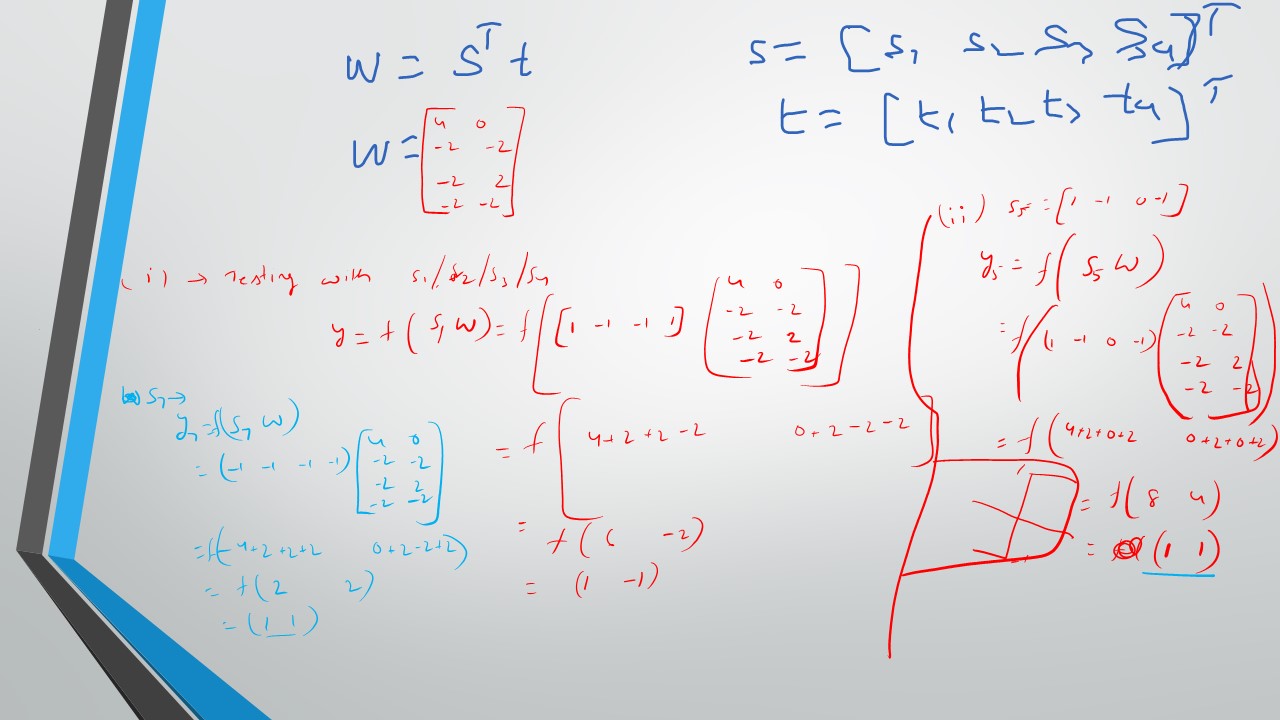 w = Sᵀ t
s = [s₁ s₂ s₃ s₄]ᵀ
t = [t₁ t₂ t₃ t₄]ᵀ
w =
4 0
-2 -2
-2 2
-2 -2
(i) → Testing with s₁/s₂/s₃/s₄
y = f(s₁ w) = f([1 -1 -1 1]
4 0
-2 -2
-2 2
-2 -2
= f[4+2+2-2 0+2-2-2]
= f(6 -2)
= (1 -1)
(ii) s₅ = [1 -1 0 -1]
y₅ = f(s₅ w)
= f((1 -1 0 -1)
4 0
-2 -2
-2 2
-2 -2
= f(4+2+0+2 0+2+0+2)
= f(8 4)
= (1 1)
s₇ →
y₇ = f(s₇ w)
= (-1 -1 -1 -1)
4 0
-2 -2
-2 2
-2 -2
= f(-4+2+2+2 0+2-2+2)
= f(2 2)
= (1 1)